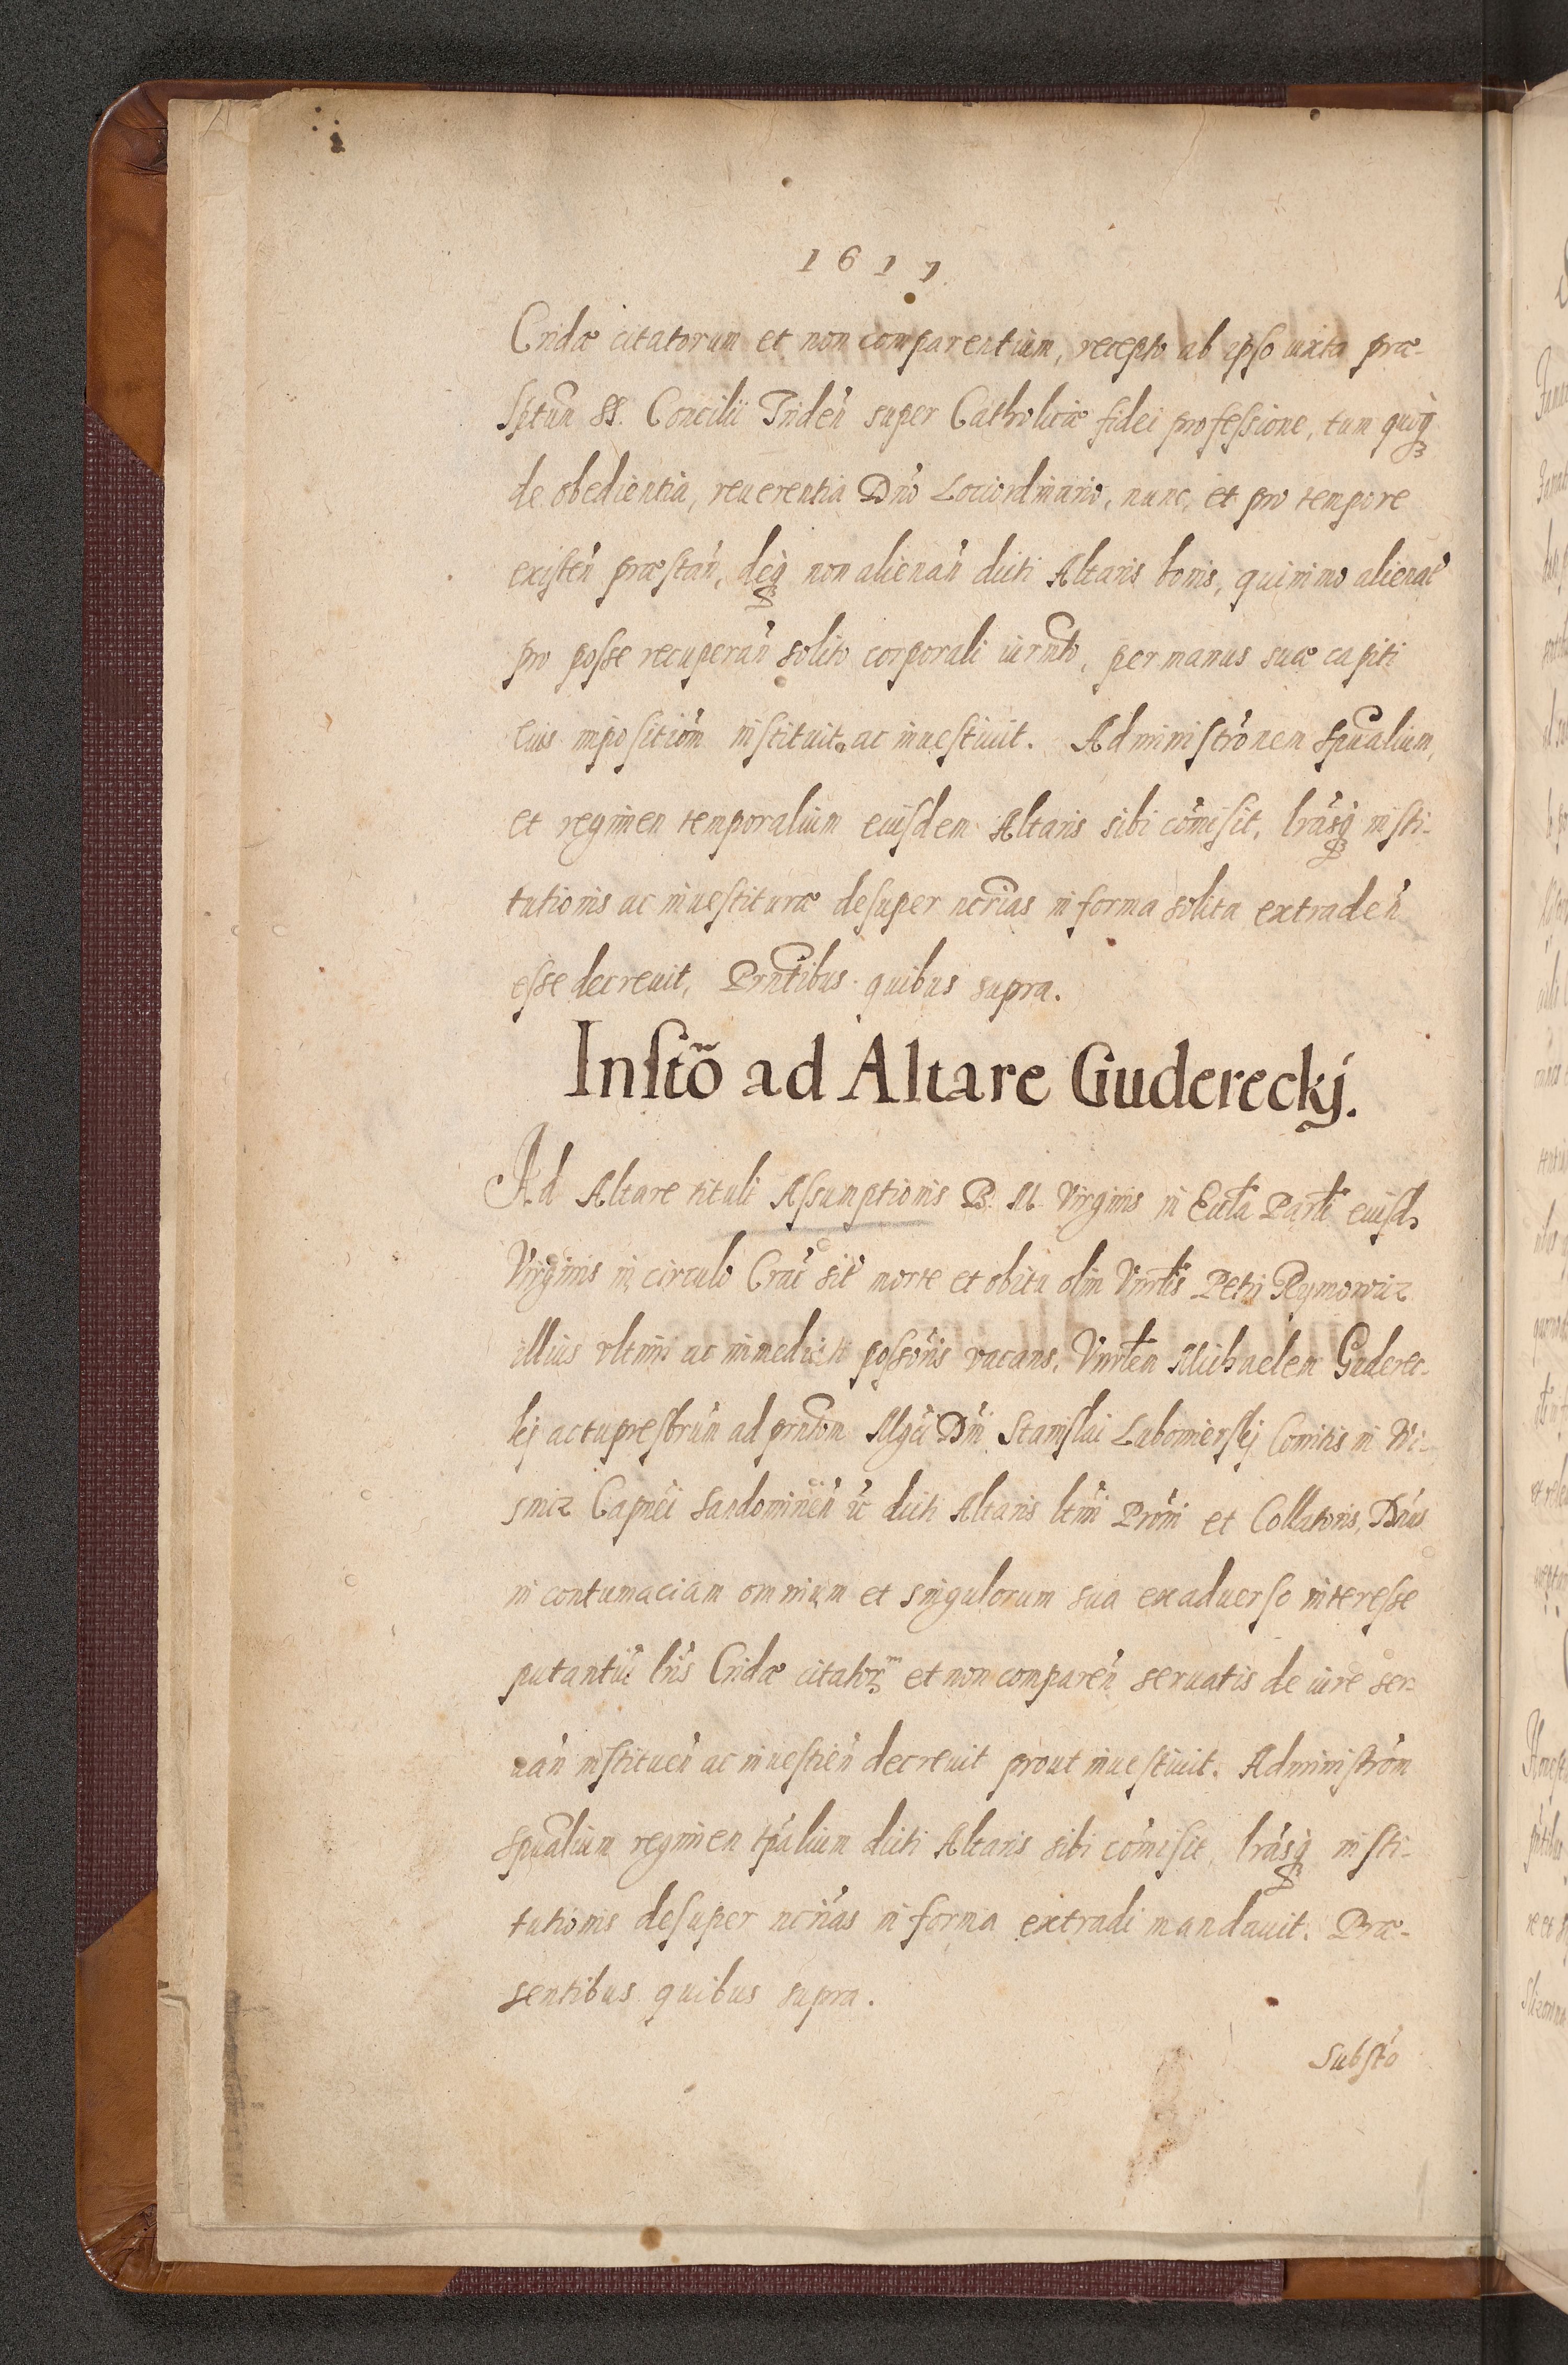 1617
Cridæ citatorum et non comparentium, recepto ab ipso iuxta præ-
sptũn SS. Concilii Tridẽn super Catholicæ fidei professione, tum quoq̃
de obedientia, reuerentia Dnõ Lociordinario, nunc, et pro tempore
existeñ præstañ, deq̃ non alienañ dicti Altaris bonis, quinimo alienat̃
pro posse recuperañ solito corporali iurmẽto, per manus suæ capiti
eius impositiõm instituit ac inuestiuit. Administrõnem spũalium,
et regimen temporalium eiusdem Altaris sibi cõmisit, lrãsq̃ insti-
tutionis ac inuestituræ desuper ncrĩas in forma solita extradeñ
esse decreuit, Prñtibus quibus supra.
Instõ ad Altare Gudereckÿ.
Ad Altare tituli Assumptionis B. M. Virginis in Eccla Parli eiusd.
Virginis in circulo Crac̃ sit̃ morte et obitu olim Vnrlis Petri Rymowicz
illius vltimi ac immediati possõris vacans. Vnrlem Michaelem Guderec-
kij actupresbrũm ad prñtõm Mgci Dñi Stanislai Lubomierskj Comitis in Wi-
snicz Capnẽi Sandomirieñ ut̃ dicti Altaris ltmĩ Prõni et Collatoris, Dñus
in contumaciam omnium et singulorum sua exaduerso interesse
putantiũ lrĩs Cridæ citatorum et non compareñ seruatis de iure ser-
uañ instituen̄ ac inuestien̄ decreuit prout inuestiuit. Administrõm
spũalium regimen tpãlium dicti Altaris sibi cõmisit, lrãsq̃ insti-
tutionis desuper ncrĩas in forma extradi mandauit. Præ-
sentibus quibus supra.
Substõ